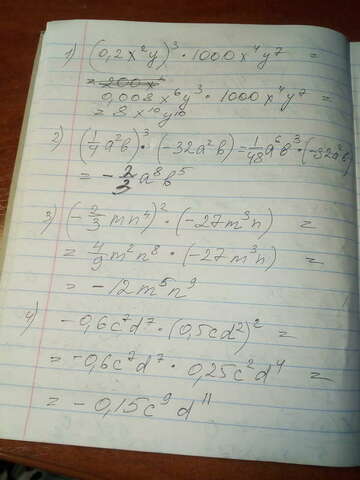 1) (0,2x²y)³ · 1000x⁴y⁷ =
= 200x⁶
0,008x⁶y³ · 1000x⁴y⁷ =
= 8x¹⁰y¹⁰
2) (1/4 a²b)³ · (-32a²b) = 1/48 a⁶b³ · (-32a²b)
= - 2/3 a⁸b⁵
3) (- 2/3 mn⁴)² · (-27m³n) =
= 4/9 m²n⁸ · (-27m³n) =
= -12m⁵n⁹
4)
-0,6c⁷d⁷ · (0,5cd²)² =
= -0,6c⁷d⁷ · 0,25c²d⁴ =
= -0,15c⁹d¹¹